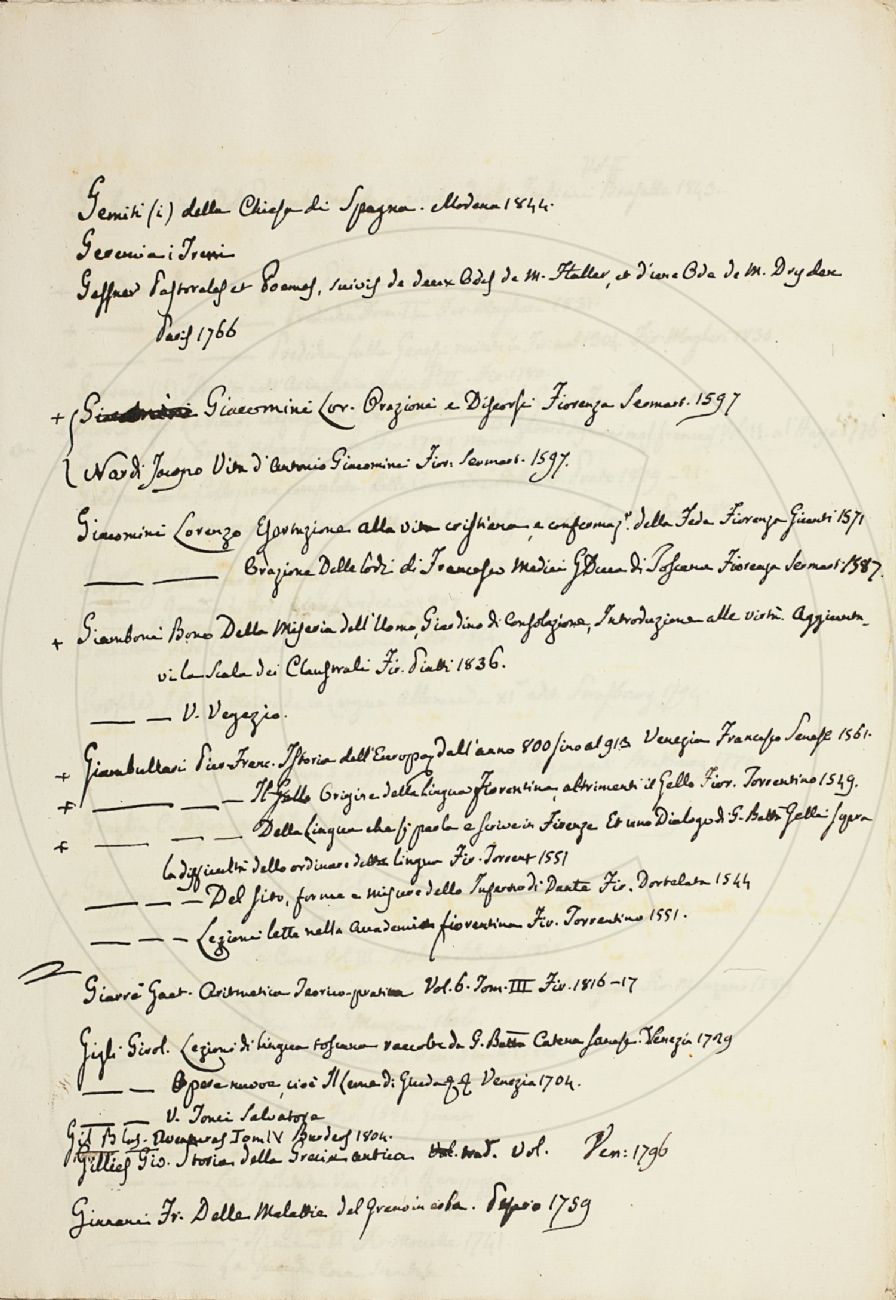 Gemiti (i) della Chiesa di Spagna. Modena 1844.
Geremia i Treni
Gessner Pastorales et Poemes, suivis de deux Odes de M. Haller, et d'une Ode de M. Dryden
Paris 1766
+ Giacomini Giacomini Lor. Orazioni e Discorsi Fiorenza Sermart. 1597
Nardi Jacopo Vita d'Antonio Giacomini Fior. Sermart. 1597.
Giacomini Lorenzo Esortazione alla vita cristiana, e confermaz.e della Fede Fiorenza Giunti 1571
— — Orazione Delle lodi di Francesco Medici GDuca di Toscana Fiorenza Sermart. 1587.
+ Giamboni Bono Della Miseria dell'Uomo, Giardino di Consolazione, Introduzione alle virtù. Aggiunta-
vi la Scala dei Claustrali Fir. Piatti 1836.
— — V. Vegezio.
+ Giambullari Pier Franc. Istoria dell'Europa, dall'anno 800 sino al 913 Venezia Francesco Senese 1561.
+ — — — Il Gello Origine della lingua fiorentina, altrimenti il Gello Fior. Torrentino 1549.
+ — — — Della Lingua che si parla e scrive in Firenze Et uno Dialogo di G. Batta Gelli sopra
la difficultà dello ordinare detta lingua Fir. Torrent 1551
— — — Del sito, forma e misure dello Inferno di Dante Fir. Dortelata 1544
— — — Lezioni lette nella Accademia fiorentina Fir. Torrentino 1551.
Giarrè Gaet. Aritmetica Teorico-pratica Vol. 6. Tom. III Fir. 1816-17
Gigli Girol. Lezioni di lingua toscana raccolte da G. Batta Catena Sanese. Venezia 1729
— — Opere nuove, cioè Il Leme di Venezia 1704.
— — V. Tonci Salvatore
Gil Blas. Aventuras Tom IV Burdeos 1804.
Gillies Gio. Storia della Grecia antica trad. Vol. Ven: 1796
Ginnani Fr. Delle Malattie del grano in erba. Pesaro 1759